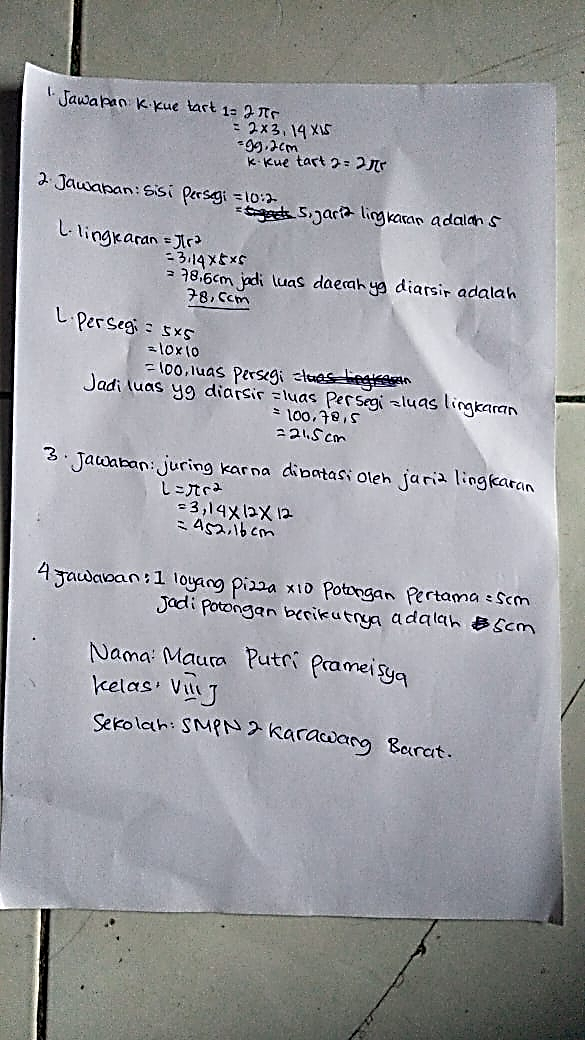 1. Jawaban: K. Kue tart 1 = 2πr
= 2×3,14×15
= 99,2cm
K. Kue tart 2 = 2πr
2. Jawaban: Sisi Persegi = 10:2
= 5, jari2 lingkaran adalah 5
L. lingkaran = πr²
= 3,14×5×5
= 78,5cm jadi luas daerah yg diarsir adalah
78,5cm
L. Persegi = 5×5
= 10×10
= 100, luas Persegi = luas lingkaran
Jadi luas yg diarsir = luas Persegi = luas lingkaran
= 100, 78,5
= 21,5 cm
3. Jawaban: juring karna dibatasi oleh jari2 lingkaran
L = πr²
= 3,14×12×12
= 452,16 cm
4 Jawaban: 1 loyang Pizza ×10 Potongan Pertama = 5cm
Jadi potongan berikutnya adalah 5cm
Nama: Maura Putri Prameisya
Kelas: VIII J
Sekolah: SMPN 2 Karawang Barat.